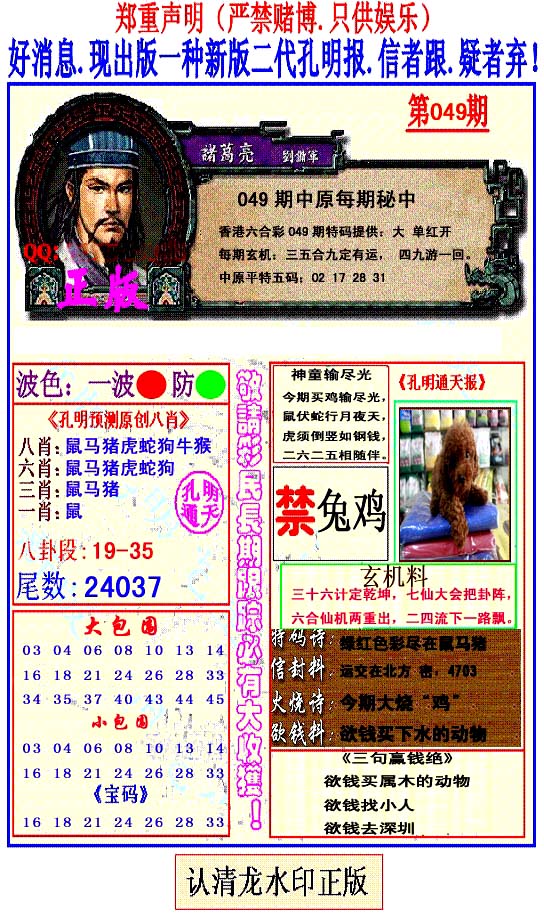 郑重声明（严禁赌博.只供娱乐）
好消息.现出版一种新版二代孔明报.信者跟.疑者弃!
第049期
諸葛亮
049 期中原每期秘中
香港六合彩 049 期特码提供：大 单红开
每期玄机：三五合九定有运， 四九游一回。
中原平特五码：02 17 28 31
QQ:
正版
波色：一波 防
《孔明预测原创八肖》
八肖:鼠马猪虎蛇狗牛猴
六肖:鼠马猪虎蛇狗
三肖:鼠马猪
一肖:鼠
孔明
通天
八卦段:19-35
尾数:24037
大包围
03 04 06 08 10 13 14
16 18 21 24 26 28 33
34 35 37 40 43 44 45
小包围
03 04 06 08 10 13 14
16 18 21 24 26 28 33
《宝码》
16 18 21 24 26 28 33
敬請彩民長期跟踪必有大收獲！
神童输尽光
今期买鸡输尽光，
鼠伏蛇行月夜天，
虎须倒竖如钢钱，
二六二五相随伴。
《孔明通天报》
禁兔鸡
玄机料
三十六计定乾坤，七仙大会把卦阵，
六合仙机两重出，二四流下一路飘。
特码诗:绿红色彩尽在鼠马猪
信封料:运交在北方 密，4703
火烧诗:今期大烧“鸡”
欲钱料:欲钱买下水的动物
《三句赢钱绝》
欲钱买属木的动物
欲钱找小人
欲钱去深圳
认清龙水印正版